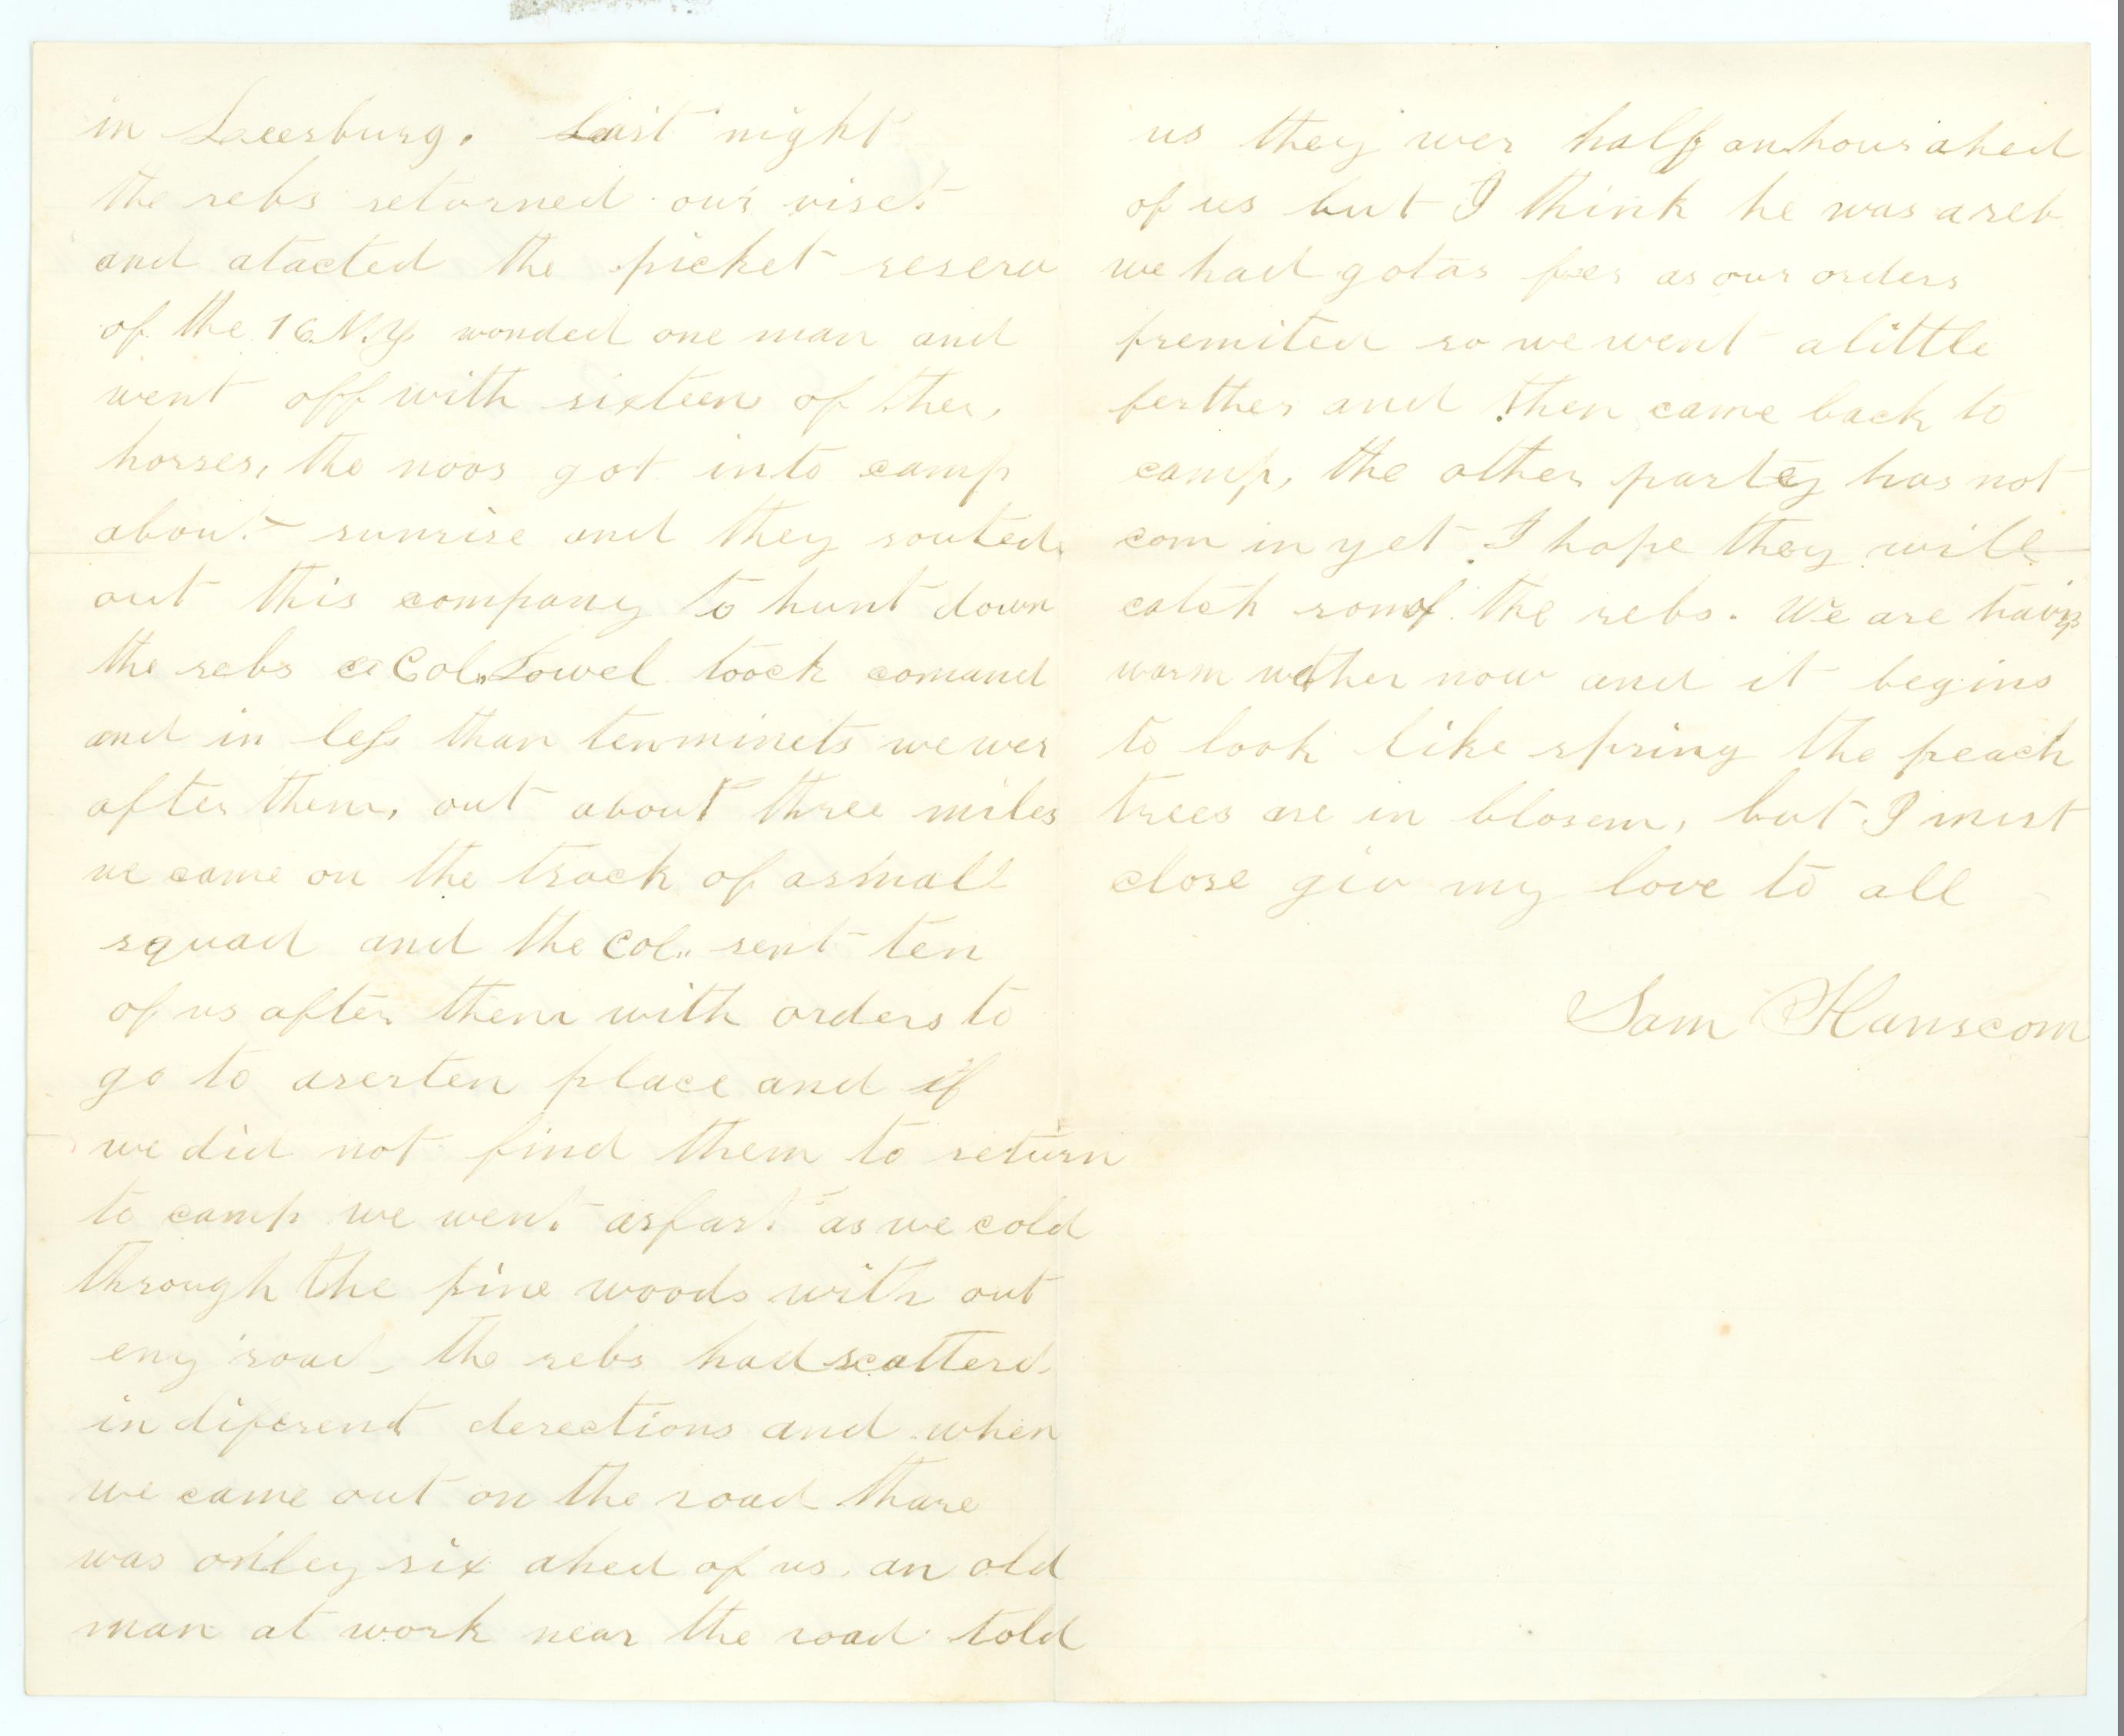 in Leesburg. Last night
the rebs returned our viset
and atacted the picket reserv
of the 16 N.Y. wonded one man and
went off with sixteen of ther
horses, the noos got into camp
about sunrise and they routed
out this company to hunt down
the rebs Col. Lowel toock comand
and in less than ten minets we wer
after them, out about three miles
we came on the track of a small
squad and the Col. sent ten
of us after them with orders to
go to a serten place and if
we did not find them to return
to camp we went as fast as we cold
through the pine woods with out
eny road the rebs had scatterd
in diferent derections and when
we came out on the road thare
was onley six ahed of us. an old
man at work near the road told
us they wer half an hour ahed
of us but I think he was a reb
we had got as fer as our orders
premited so we went a little
ferther and then came back to
camp, the other partey has not
com in yet I hope they will
catch som of the rebs. We are having
warm wether now and it begins
to look like spring the peach
trees are in blosem, but I must
close giv my love to all
Sam Hanscom